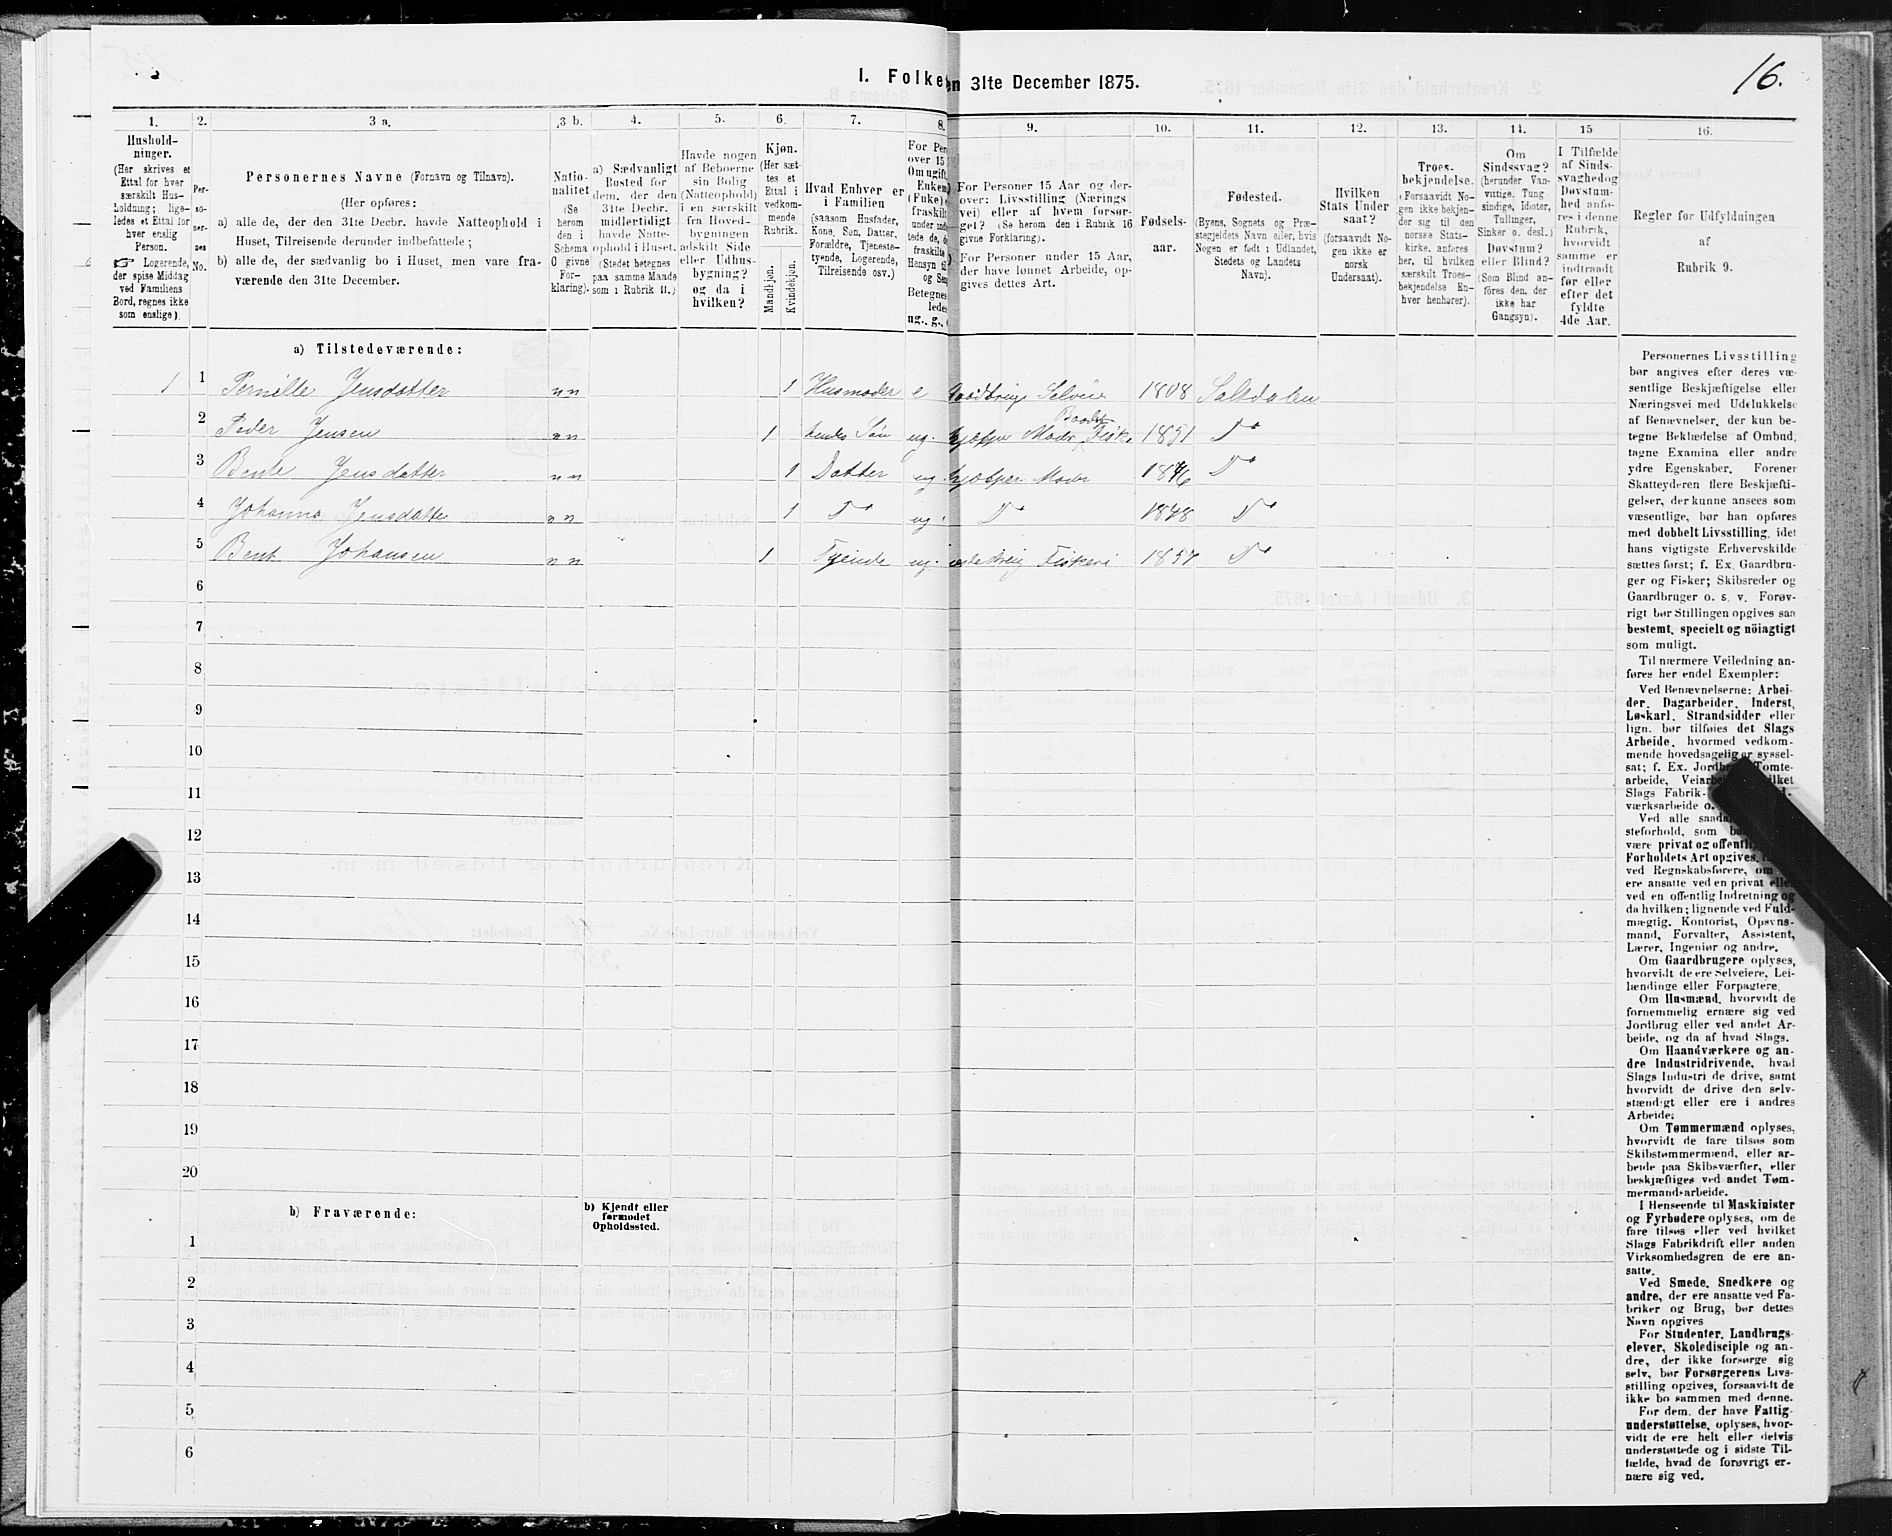 16.
I. Folke
en 31te December 1875.
1. 2. 3 a. 3 b. 4. 5. 6. 7. 8. 9. 10. 11. 12. 13. 14. 15 16.
Hushold-
ninger.
(Her skrives et
Ettal for hver
særskilt Hus-
holdning; lige-
ledes et Ettal for
hver enslig
Person.
☞ Logerende,
der spise Middag
ved Familiens
Bord, regnes ikke
som enslige).
Per-
so-
ner-
nes
No.
Personernes Navne (Fornavn og Tilnavn).
(Her opføres:
a) alle de, der den 31te Decbr. havde Natteophold i
Huset, Tilreisende derunder indbefattede;
b) alle de, der sædvanlig bo i Huset, men vare fra-
værende den 31te December.
Natio-
nalitet
(Se
herom
den i
Schema
O givne
For-
klaring).
a) Sædvanligt
Bosted for
dem, der den
31te Decbr.
midlertidigt
havde Natte-
ophold i Huset.
(Stedet betegnes
paa samme Maade
som i Rubrik 11.)
Havde nogen
af Beboerne
sin Bolig
(Natteophold)
i en særskilt
fra Hoved-
bygningen
adskilt Side
eller Udhus-
bygning?
og da i
hvilken?
Kjøn.
(Her sæt-
tes et
Ettal i
vedkom-
mende
Rubrik.
Mandkjøn.
Kvindekjøn.
Hvad Enhver er
i Familien
(saasom Husfader,
Kone, Søn, Datter,
Forældre, Tjeneste-
tyende, Logerende,
Tilreisende osv.)
For Per
over 15
Om ugift,
Enken
(Fuke)
fraskilt
og Sen
Betegnes
ledes
ug., g.,
For Personer 15 Aar og der-
over: Livsstilling (Nærings-
vei) eller af hvem forsør-
get? (Se herom den i Rubrik 16
givne Forklaring).
For Personer under 15 Aar,
der have lønnet Arbeide, op-
gives dettes Art.
Fødsels-
aar.
Fødested.
(Byens, Sognets og Præ-
stegjeldets Navn eller, hvis
Nogen er født i Udlandet,
Stedets og Landets
Navn).
Hvilken
Stats Under
saat?
(forsaavidt No-
gen ikke er
norsk
Undersaat).
Troes-
bekjendelse.
(Forsaavidt No-
gen ikke bekjen-
der sig til den
norske Stats-
kirke, anføres
her, til hvilken
særskilt Troes-
bekjendelse En-
hver henhører).
Om
Sindssvag?
(herunder Van-
vittige, Tung-
sindige, Idioter,
Tullinger,
Sinker o. desl.)
Døvstum?
eller Blind?
(Som Blind an-
føres den, der
ikke har
Gangsyn).
I Tilfælde
af Sinds-
svaghed og
Døvstum-
hed anfø-
res i denne
Rubrik,
hvorvidt
samme er
indtraadt
før eller
efter det
fyldte
4de Aar.
Regler for Udfyldningen
af
Rubrik 9.
a) Tilstedeværende:
1 1 Pernille Jensdatter n n 1 Husmoder e Selveier 1808 Saltdalen
2 Peder Jensen n n 1 hendes Søn ug. Moder 1851 Do
3 Bente Jensdatter n n 1 Datter ug. hjælper Moder 1846 Do
4 Johanna Jensdatter n n 1 Do ug. Do 1848 Do
5 Bent Johansen n n 1 Tyende ug. Fiskeri 1857 Do
6
7
8
9
10
11
12
13
14
15
16
17
18
19
20
b) Fraværende:
b) Kjendt eller
formodet
Opholdssted.
1
2
3
4
5
6
Personernes Livsstilling
bør angives efter deres væ-
sentlige Beskjæftigelse eller
Næringsvei med Udelukkelse
af Benævnelser, der kun be-
tegne Beklædelse af Ombud,
tagne Examina eller andre
ydre Egenskaber. Forener
Skatteyderen flere Beskjæfti-
gelser, der kunne ansees som
væsentlige, bør han opføres
med dobbelt Livsstilling, idet
hans vigtigste Erhvervskilde
sættes først; f. Ex. Gaardbru-
ger og Fisker; Skibsreder og
Gaardbruger o. s. v. Forøv-
rigt bør Stillingen opgives saa
bestemt, specielt og nöiagtigt
som muligt.
Til nærmere Veiledning an-
føres her endel Exempler:
Ved Benævnelserne: Arbei-
der, Dagarbeider, Inderst,
Løskarl, Strandsidder eller
lign. bør tilføies det Slags
Arbeide, hvormed vedkom-
mende hovedsagelig er syssel-
sat; f. Ex. Tomte-
arbeide,
Slags Fabrik-
værksarbeide o.
Ved alle
steforhold, som
være privat og offentlig
Forholdets Art opgives,
ved Regnskabsførere, om
ere ansatte ved en privat eller
ved en offentlig Indretning og
da hvilken; lignende ved Fuld-
mægtig, Kontorist, Opsyns-
mand, Forvalter, Assistent,
Lærer, Ingeniør og andre.
Om Gaardbrugere oplyses,
hvorvidt de ere Selveiere, Lei-
lændinge eller Forpagtere.
Om Husmænd, hvorvidt de
fornemmelig ernære sig ved
Jordbrug eller ved andet Ar-
beide, og da af hvad Slags.
Om Haandværkere og an-
dre Industridrivende, hvad
Slags Industri de drive, samt
hvorvidt de drive den selv-
stændigt eller ere i andres
Arbeide;
Om Tømmermænd oplyses,
hvorvidt de fare tilsøs som
Skibstømmermænd, eller ar-
beide paa Skibsværfter, eller
beskjæftiges ved andet Tøm-
mermandsarbeide.
I Henseende til Maskinister
og Fyrbødere oplyses, om de
fare tilsøs eller ved hvilket
Slags Fabrikdrift eller anden
Virksomhedsgren de ere an-
satte.
Ved Smede, Snedkere og
andre, der ere ansatte ved Fa-
briker og Brug, bør dettes
Navn opgives
For Studenter, Landbrugs-
elever, Skoledisciple og an-
dre, der ikke forsørge sig
selv, bør Forsørgerens Livs-
stilling opgives, forsaavidt de
ikke bo sammen med denne.
For dem, der have Fattig-
understøttelse, oplyses, hvor-
vidt de ere helt eller delvis
understøttede og i sidste Til-
fælde, hvad de forøvrigt er-
nære sig ved.